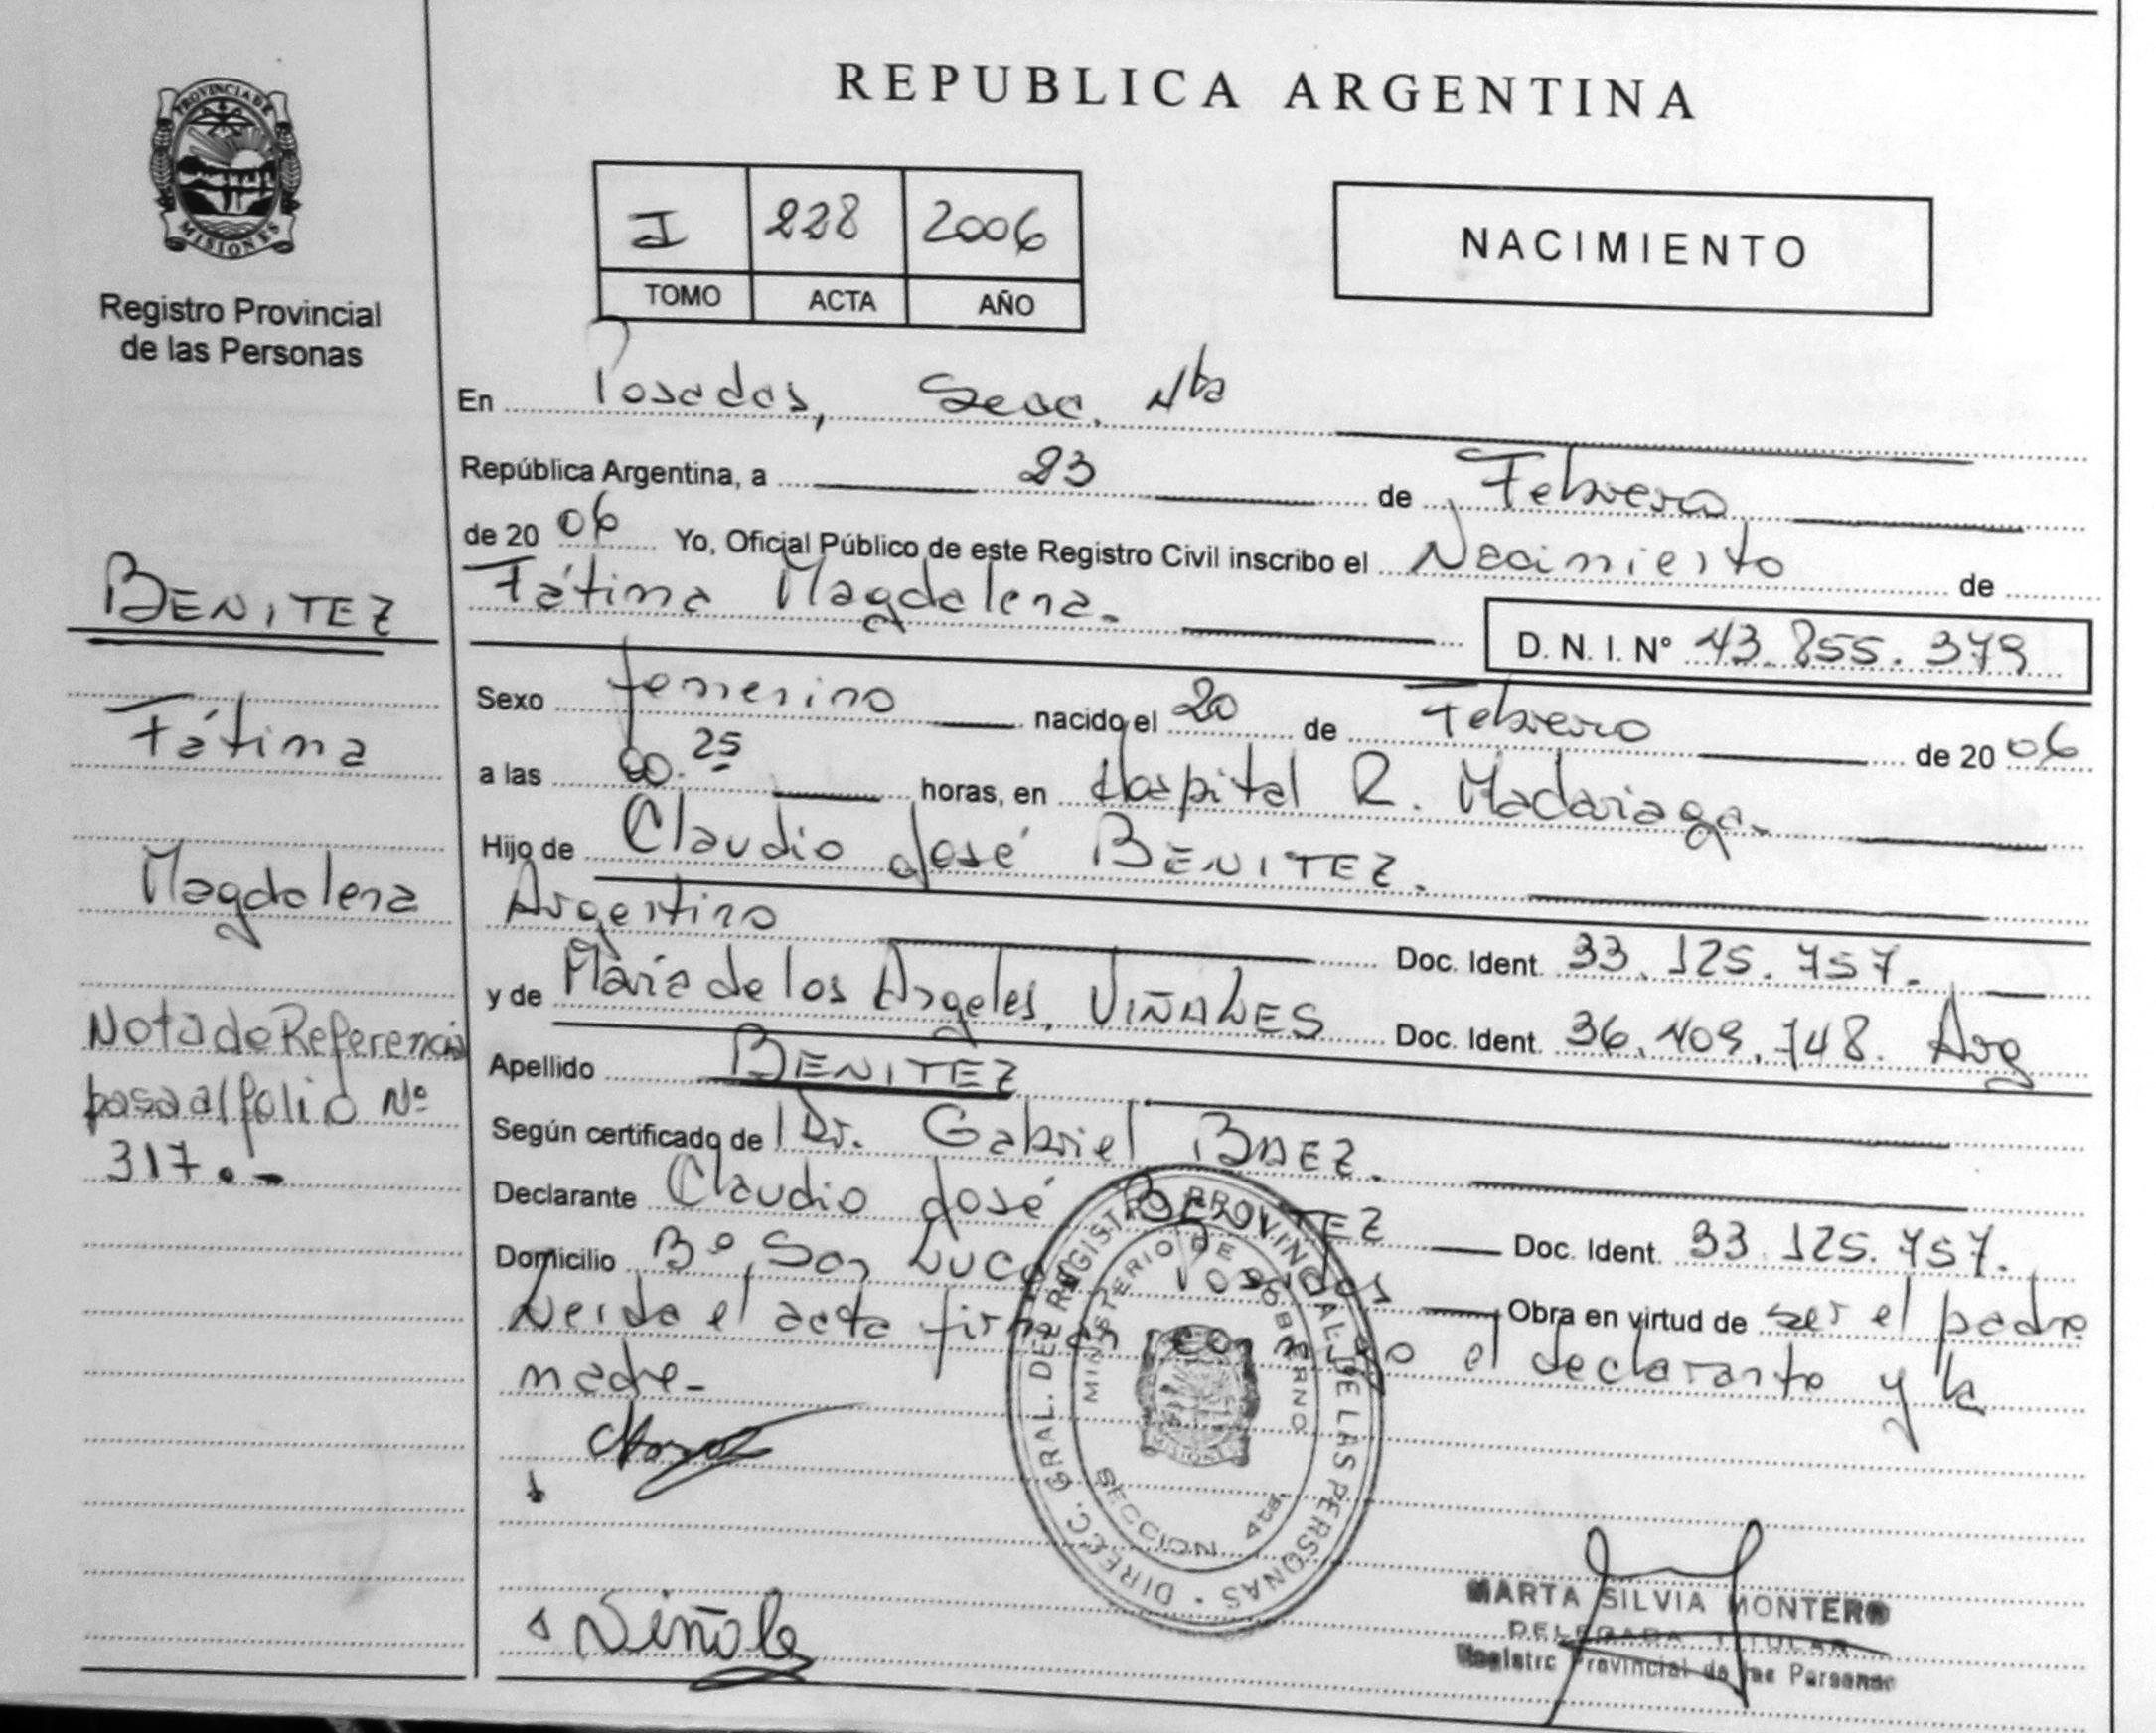 PROVINCIA DE
MISIONES
Registro Provincial
de las Personas
BENITEZ
Fátima
Magdalena
Nota de Referencia
pasa al folio Nº
317.-
REPUBLICA ARGENTINA
I 228 2006
TOMO ACTA AÑO
NACIMIENTO
En Posadas, Secc. 4ta
República Argentina, a 23 de Febrero
de 2006 Yo, Oficial Público de este Registro Civil inscribo el Nacimiento de
Fátima Magdalena.
D. N. I. Nº 43.855.379
Sexo femenino nacido el 20 de Febrero de 2006
a las 00.25 horas, en Hospital R. Madariaga.
Hijo de Claudio José BENITEZ.
Argentino Doc. Ident. 33.125.757.
y de María de los Angeles, VIÑALES Doc. Ident. 36.409.748. Arg
Apellido BENITEZ
Según certificado de Dr. Gabriel BAEZ.
Declarante Claudio José BENITEZ Doc. Ident. 33.125.757.
Domicilio Bº San Lucas Posadas Obra en virtud de ser el padre
Leída el acta firman conmigo el declarante y la
madre-
DIRECC. GRAL. DE REGISTRO PROVINCIAL DE LAS PERSONAS
MINISTERIO DE GOBIERNO
MISIONES
SECCION 4ta.
Viñale
MARTA SILVIA MONTERO
DELEGADA TITULAR
Registro Provincial de las Personas